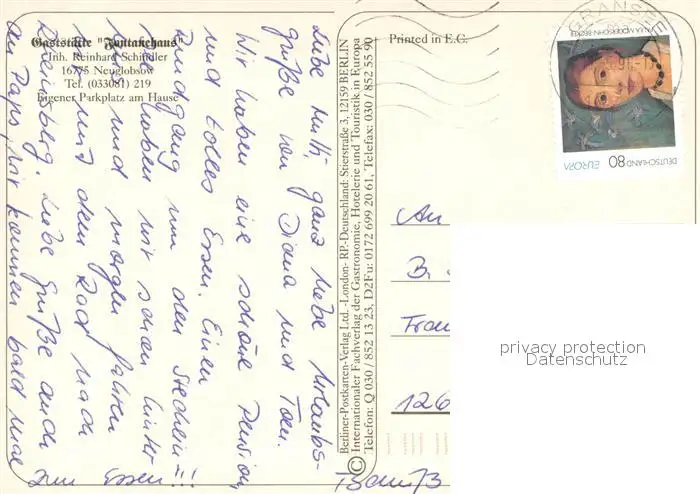 Gaststätte "Fontanehaus"
Inh. Reinhard Schindler
16775 Neuglobsow
Tel. (033081) 219
Eigener Parkplatz am Hause
Liebe Mutti, ganz liebe Urlaubs-
grüße von Diana und Tom.
Wir haben eine schöne Pension
und tolles Essen. Einen
Rundgang um den Stechlin
haben wir schon hinter
uns und morgen fahren
wir mit dem Rad nach
Rheinsberg. Liebe Grüße auch
an Paps, wir kommen bald mal
zum Essen!!!
Berliner-Postkarten-Verlag Ltd. -London- RP.-Deutschland: Stierstraße 3, 12159 BERLIN
Internationaler Fachverlag der Gastronomie, Hotelerie und Touristik in Europa
© Telefon: Q 030 / 852 13 23, D2Fu: 0172 699 20 61, Telefax: 030 / 852 55 90
Printed in E.C.
GRANSEE
PAULA MODERSOHN-BECKER
DEUTSCHLAND 80 EUROPA
An
B.
Frau
126
privacy protection
Datenschutz